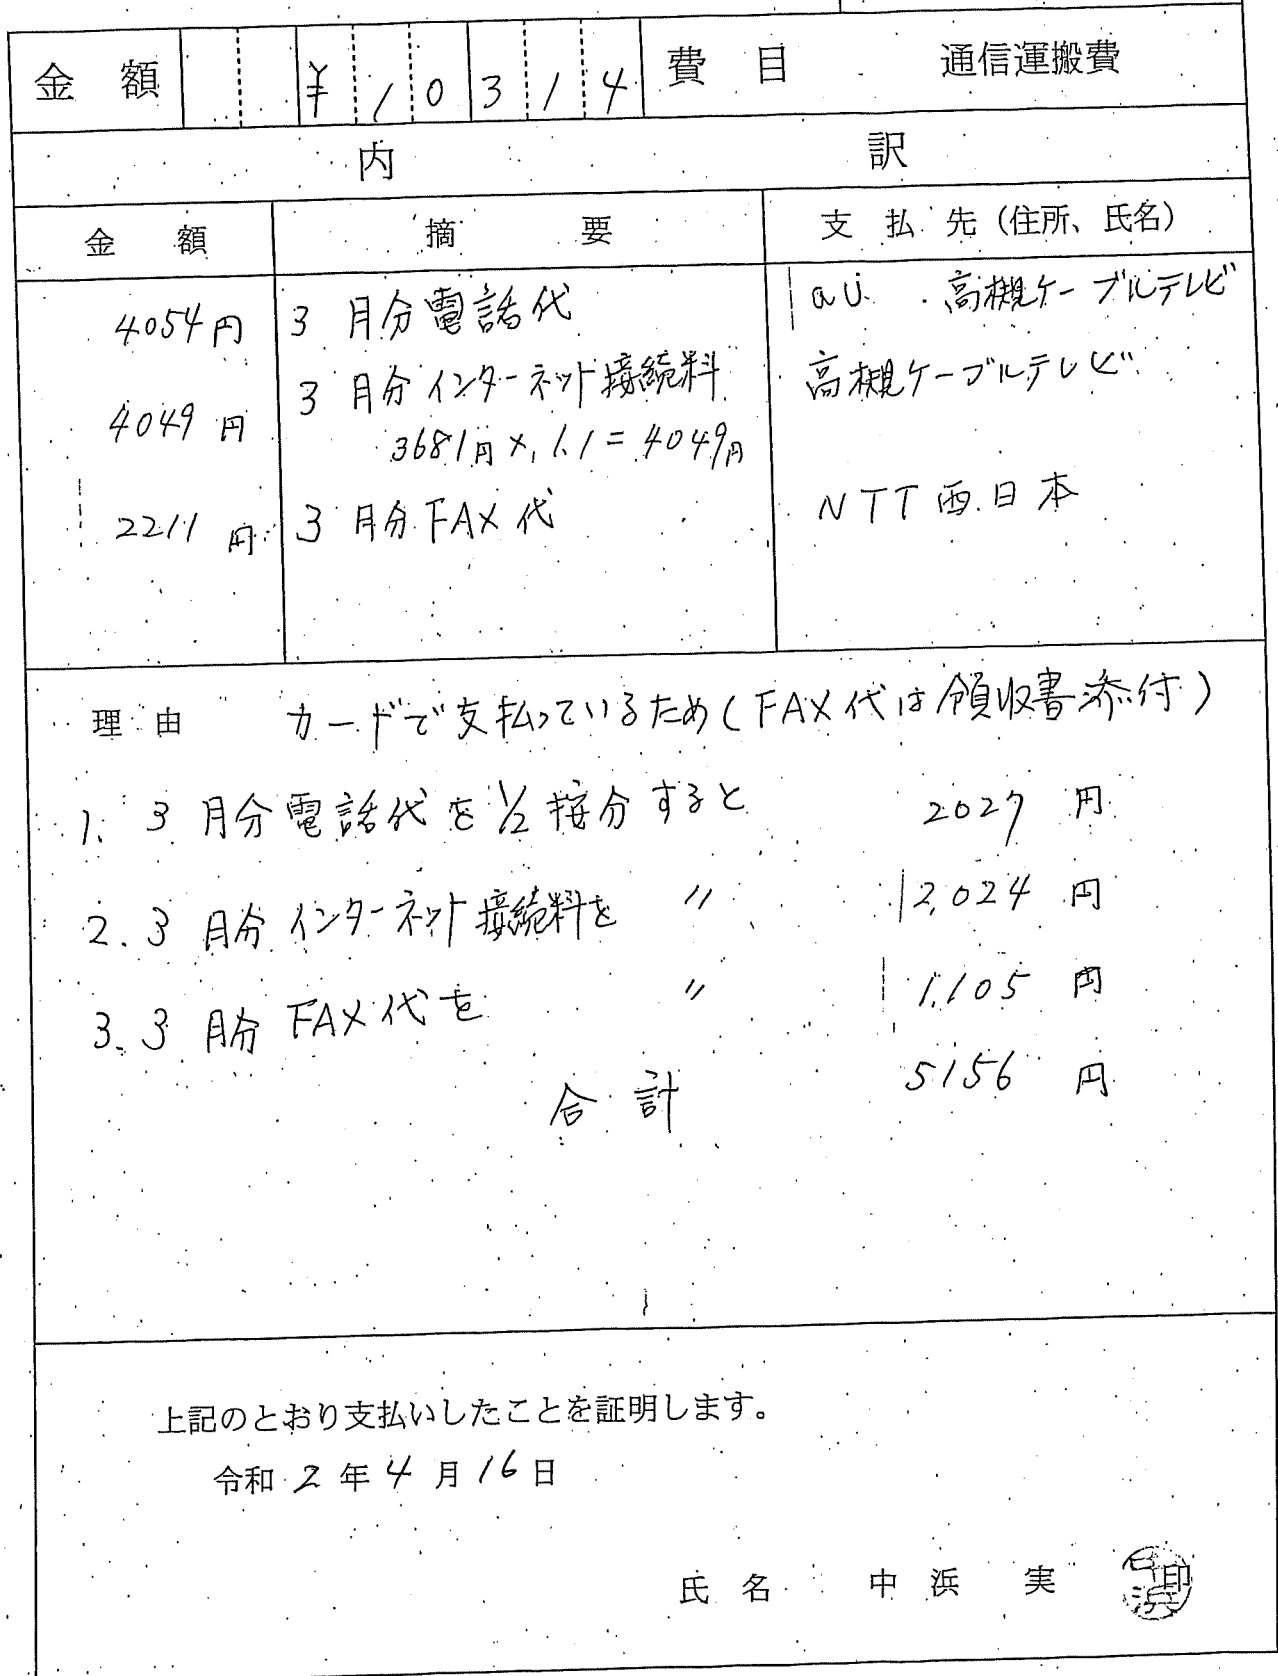 金 額 ¥10314 費 目 通信運搬費
内 訳
金 額 摘 要 支 払 先（住所、氏名）
4054円 3 月分電話代 au 高槻ケーブルテレビ
4049円 3 月分インターネット接続料 高槻ケーブルテレビ
3681円×1.1=4049円
2211円 3 月分FAX代 NTT西日本
理 由 カードで支払っているため(FAX代は領収書添付)
1. 3 月分電話代を1/2按分すると 2027 円
2. 3 月分インターネット接続料を 〃 2,024 円
3. 3 月分FAX代を 〃 1,105 円
合計 5156 円
上記のとおり支払いしたことを証明します。
令和 2 年 4 月 16 日
氏 名 中 浜 実 印